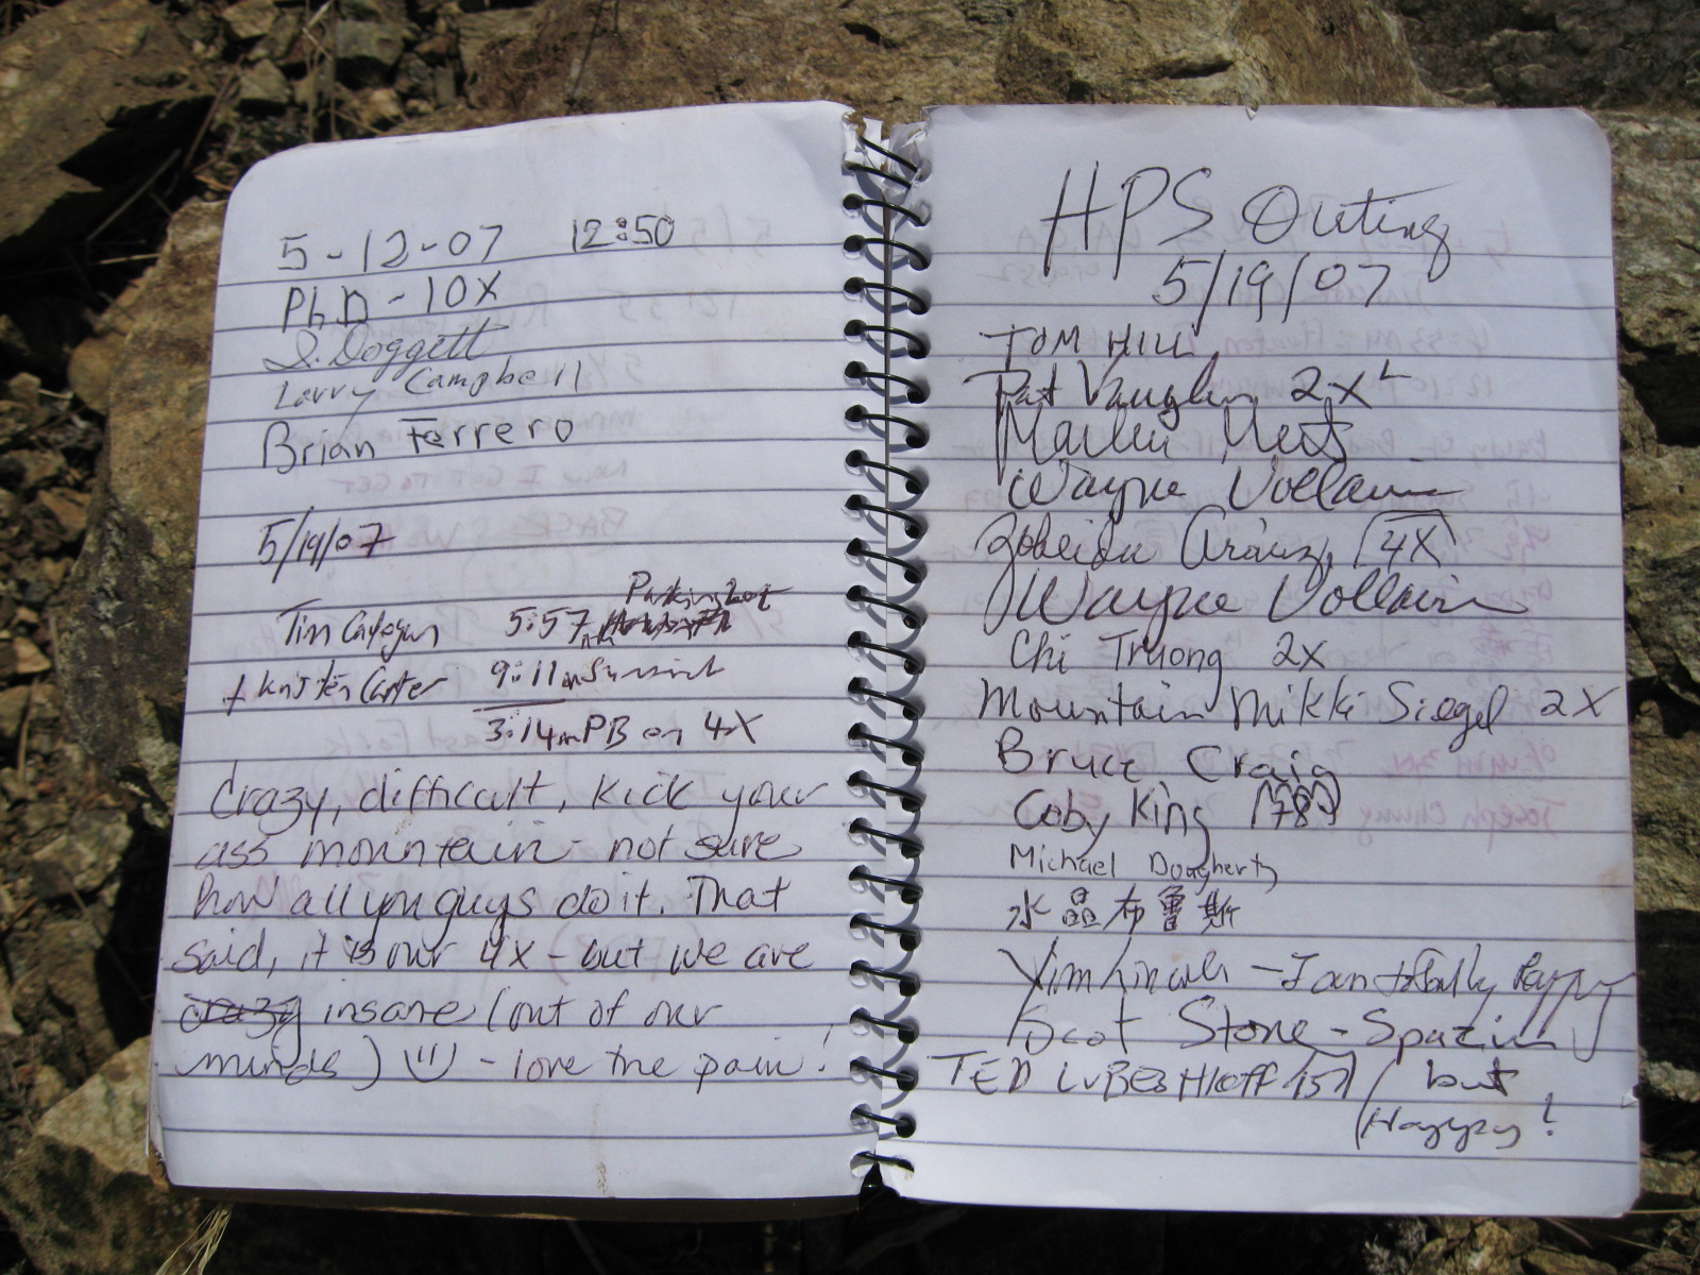 5-12-07 12:50
Ph.D - 10X
D. Doggett
Larry Campbell
Brian Ferrero
5/19/07
Parking Lot
Tim 5:57
+ Kristen Carter 9:11 Summit
3:14 PB on 4X
Crazy, difficult, kick your
ass mountain - not sure
how all you guys do it. That
said, it is our 4X - but we are
crazy insane (out of our
minds) - love the pain!
HPS Outing
5/19/07
TOM HILL
Pat Vaughn 2X
Wayne Vollaire
Zobeida Aráuz, 4X
Wayne Vollaire
Chi Truong 2X
Mountain Mikki Siegel 2X
Bruce Craig
Coby King
Michael Dougherty
水晶布魯斯
- I am totally happy
Scot Stone - Spazin
TED LUBESHKOFF 157 but
Happy!